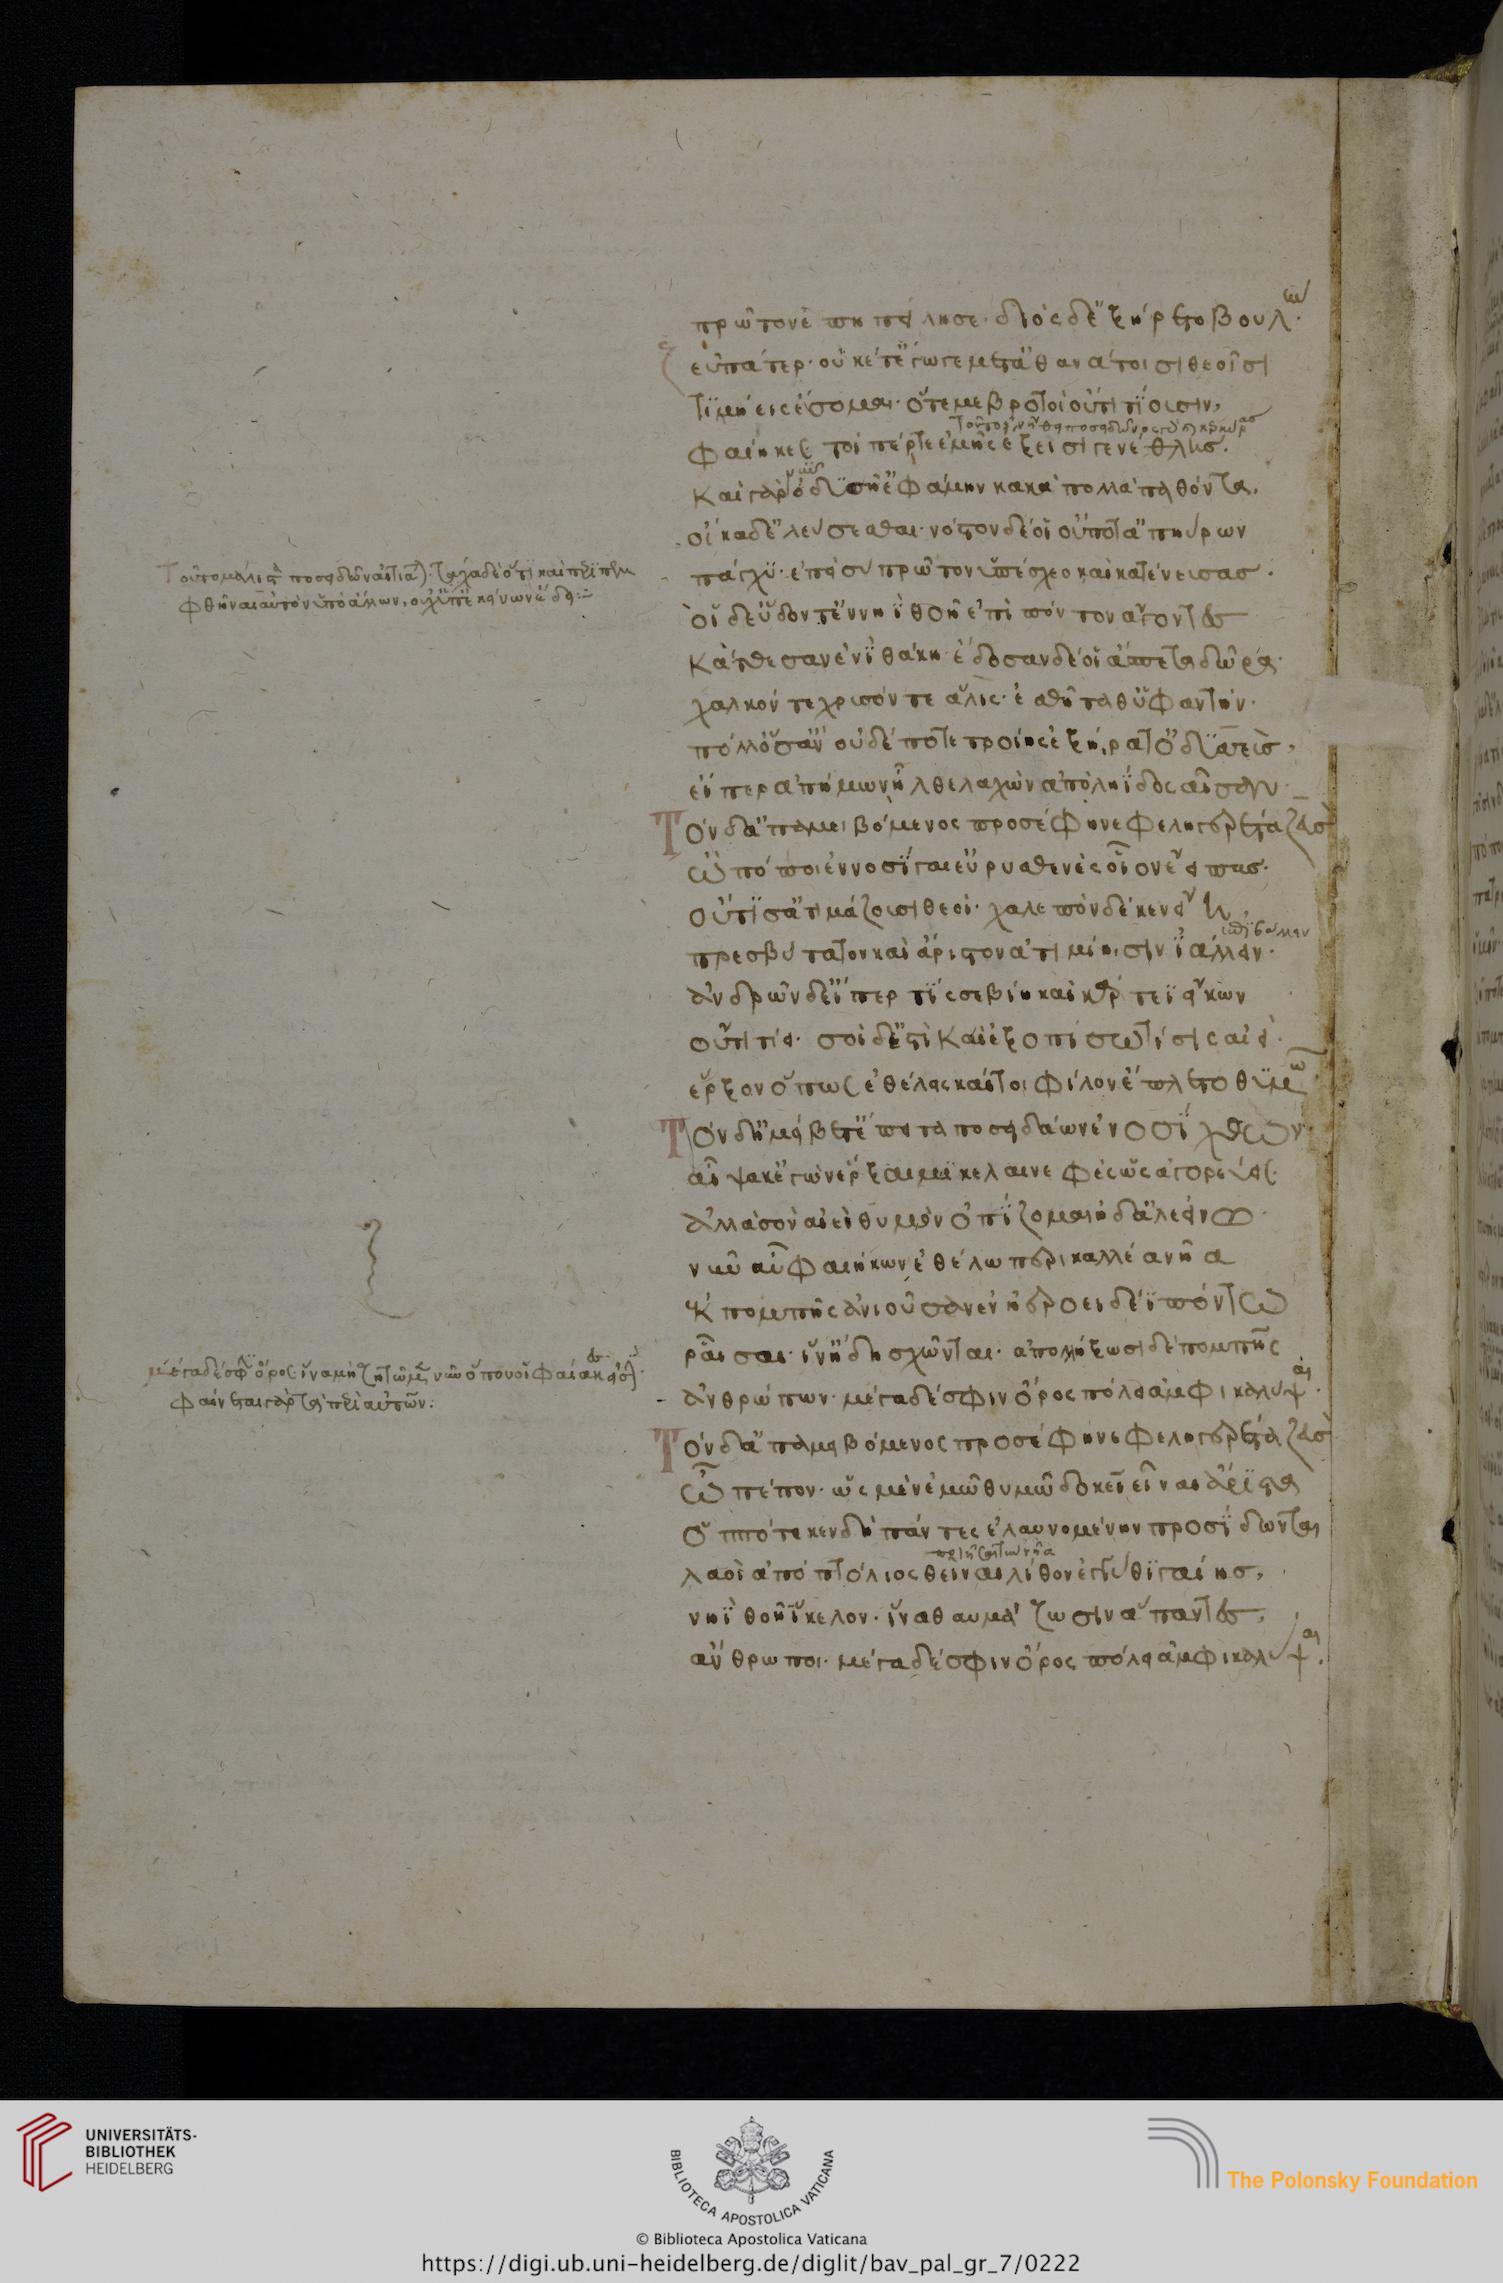 πρῶτον ἐπηπείλησε· διὸς δ' ἐξήρετο βουλήν·
ζεῦ πάτερ· οὐκέτ' ἔγωγε μετ' ἀθανάτοισι θεοῖσι
τιμήεις ἔσομαι· ὅτε με βροτοὶ οὔτι τίουσιν,
φαίηκες τοί πέρ τε ἐμῆς ἔξεισι γενέθλης.
καὶ γὰρ νῦν ὀδυσῆ' ἐφάμην κακὰ πολλὰ παθόντα,
οἴκαδ' ἐλεύσεσθαι· νόστον δέ οἱ οὔποτ' ἀπηύρων
πάγχυ· ἐπεὶ σὺ πρῶτον ὑπέσχεο καὶ κατένευσας.
οἱ δ' εὕδοντ' ἐν νηῒ θοῇ ἐπὶ πόντον ἄγοντες
κάτθεσαν ἐν ἰθάκη· ἔδοσαν δέ οἱ ἄσπετα δῶρα·
χαλκόν τε χρυσόν τε ἅλις· ἐσθῆτα θ' ὑφαντήν·
πόλλ' ὅσ' ἂν οὐδέποτε τροίης ἐξήρατ' ὀδυσσεὺς,
εἴπερ ἀπήμων ἦλθε λαχὼν ἀπὸ ληΐδος αἶσαν·
Τὸν δ' ἀπαμειβόμενος προσέφη νεφεληγερέτα ζεύς
ὢ πόποι ἐννοσίγαι' εὐρυσθενὲς οἷον ἔειπας·
οὔτι σ' ἀτιμάζουσι θεοί· χαλεπὸν δέ κεν εἴη
πρεσβύτατον καὶ ἄριστον ἀτιμίησιν ἰάλλειν·
ἀνδρῶν δ' εἴπερ τίς σε βίη καὶ κάρτεϊ εἴκων
οὔτι τίει· σοὶ δ' ἐστὶ καὶ ἐξοπίσω τίσις αἰεί·
ἔρξον ὅπως ἐθέλεις καί τοι φίλον ἔπλετο θυμῶ·
Τὸν δ' ἠμείβετ' ἔπειτα ποσειδάων ἐνοσίχθων·
αἶψά κ' ἐγὼν ἔρξαιμι κελαινεφὲς ὡς ἀγορεύεις·
ἀλλὰ σὸν αἰεὶ θυμὸν ὀπίζομαι ἠδ' ἀλεείνω·
νῦν αὖ φαιήκων ἐθέλω περικαλλέα νῆα
ἐκ πομπῆς ἀνιοῦσαν ἐν ἠεροειδέϊ πόντω
ῥαῖσαι· ἵν' ἤδη σχῶνται· ἀπολλήξωσι δὲ πομπῆς
ἀνθρώπων· μέγα δέ σφιν ὄρος πόλει ἀμφικαλύψαι.
Τὸν δ' ἀπαμειβόμενος προσέφη νεφεληγερέτα ζεύς
ὦ πέπον· ὡς μὲν ἐμῶ θυμῶ δοκεῖ εἶναι ἄριστα
ὁππότε κεν δὴ πάντες ἐλαυνομένην προσίδωνται
λαοὶ ἀπὸ πτόλιος θεῖναι λίθον ἐγγύθι γαίης,
νηῒ θοῇ ἴκελον· ἵνα θαυμάζωσιν ἅπαντες,
ἄνθρωποι· μέγα δέ σφιν ὄρος πόλει ἀμφικαλύψαι.
μέγα δέ σφιν ὄρος· ἵνα μὴ ζητῶμεν νῦν ὅπου οἱ φαίακές
φαίνεται γὰρ τὰ περὶ αὐτῶν:
UNIVERSITÄTS-
BIBLIOTHEK
HEIDELBERG
BIBLIOTECA APOSTOLICA VATICANA
The Polonsky Foundation
© Biblioteca Apostolica Vaticana
https://digi.ub.uni-heidelberg.de/diglit/bav_pal_gr_7/0222